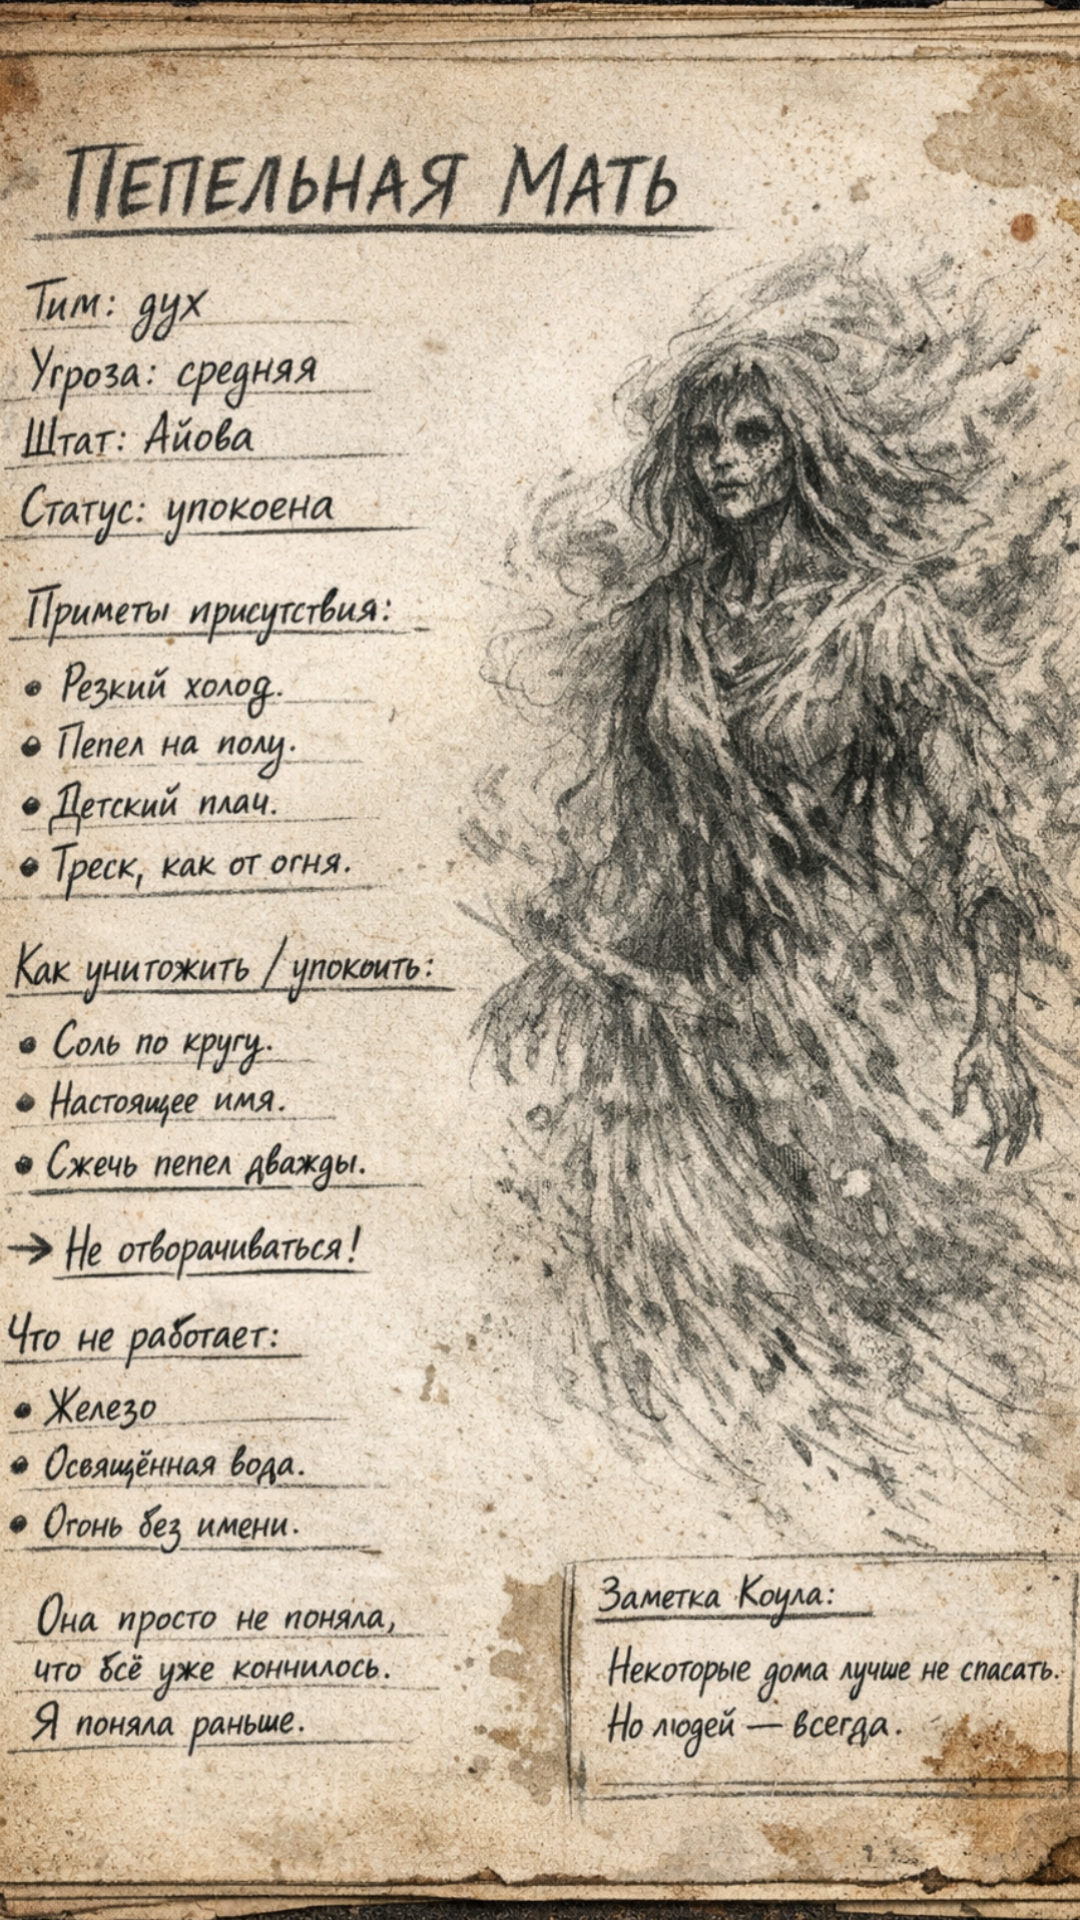 Пепельная Мать
Тип: дух
Угроза: средняя
Штат: Айова
Статус: упокоена
Приметы присутствия:
• Резкий холод.
• Пепел на полу.
• Детский плач.
• Треск, как от огня.
Как уничтожить / упокоить:
• Соль по кругу.
• Настоящее имя.
• Сжечь пепел дважды.
→ Не отворачиваться!
Что не работает:
• Железо
• Освящённая вода.
• Огонь без имени.
Она просто не поняла,
что всё уже кончилось.
Я поняла раньше.
Заметка Коула:
Некоторые дома лучше не спасать.
Но людей — всегда.